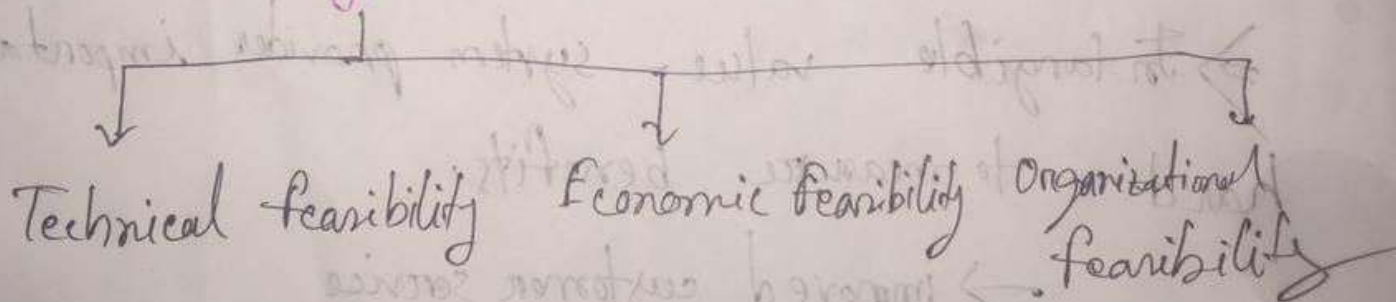 Technical feasibility Economic feasibility Organizational
feasibility